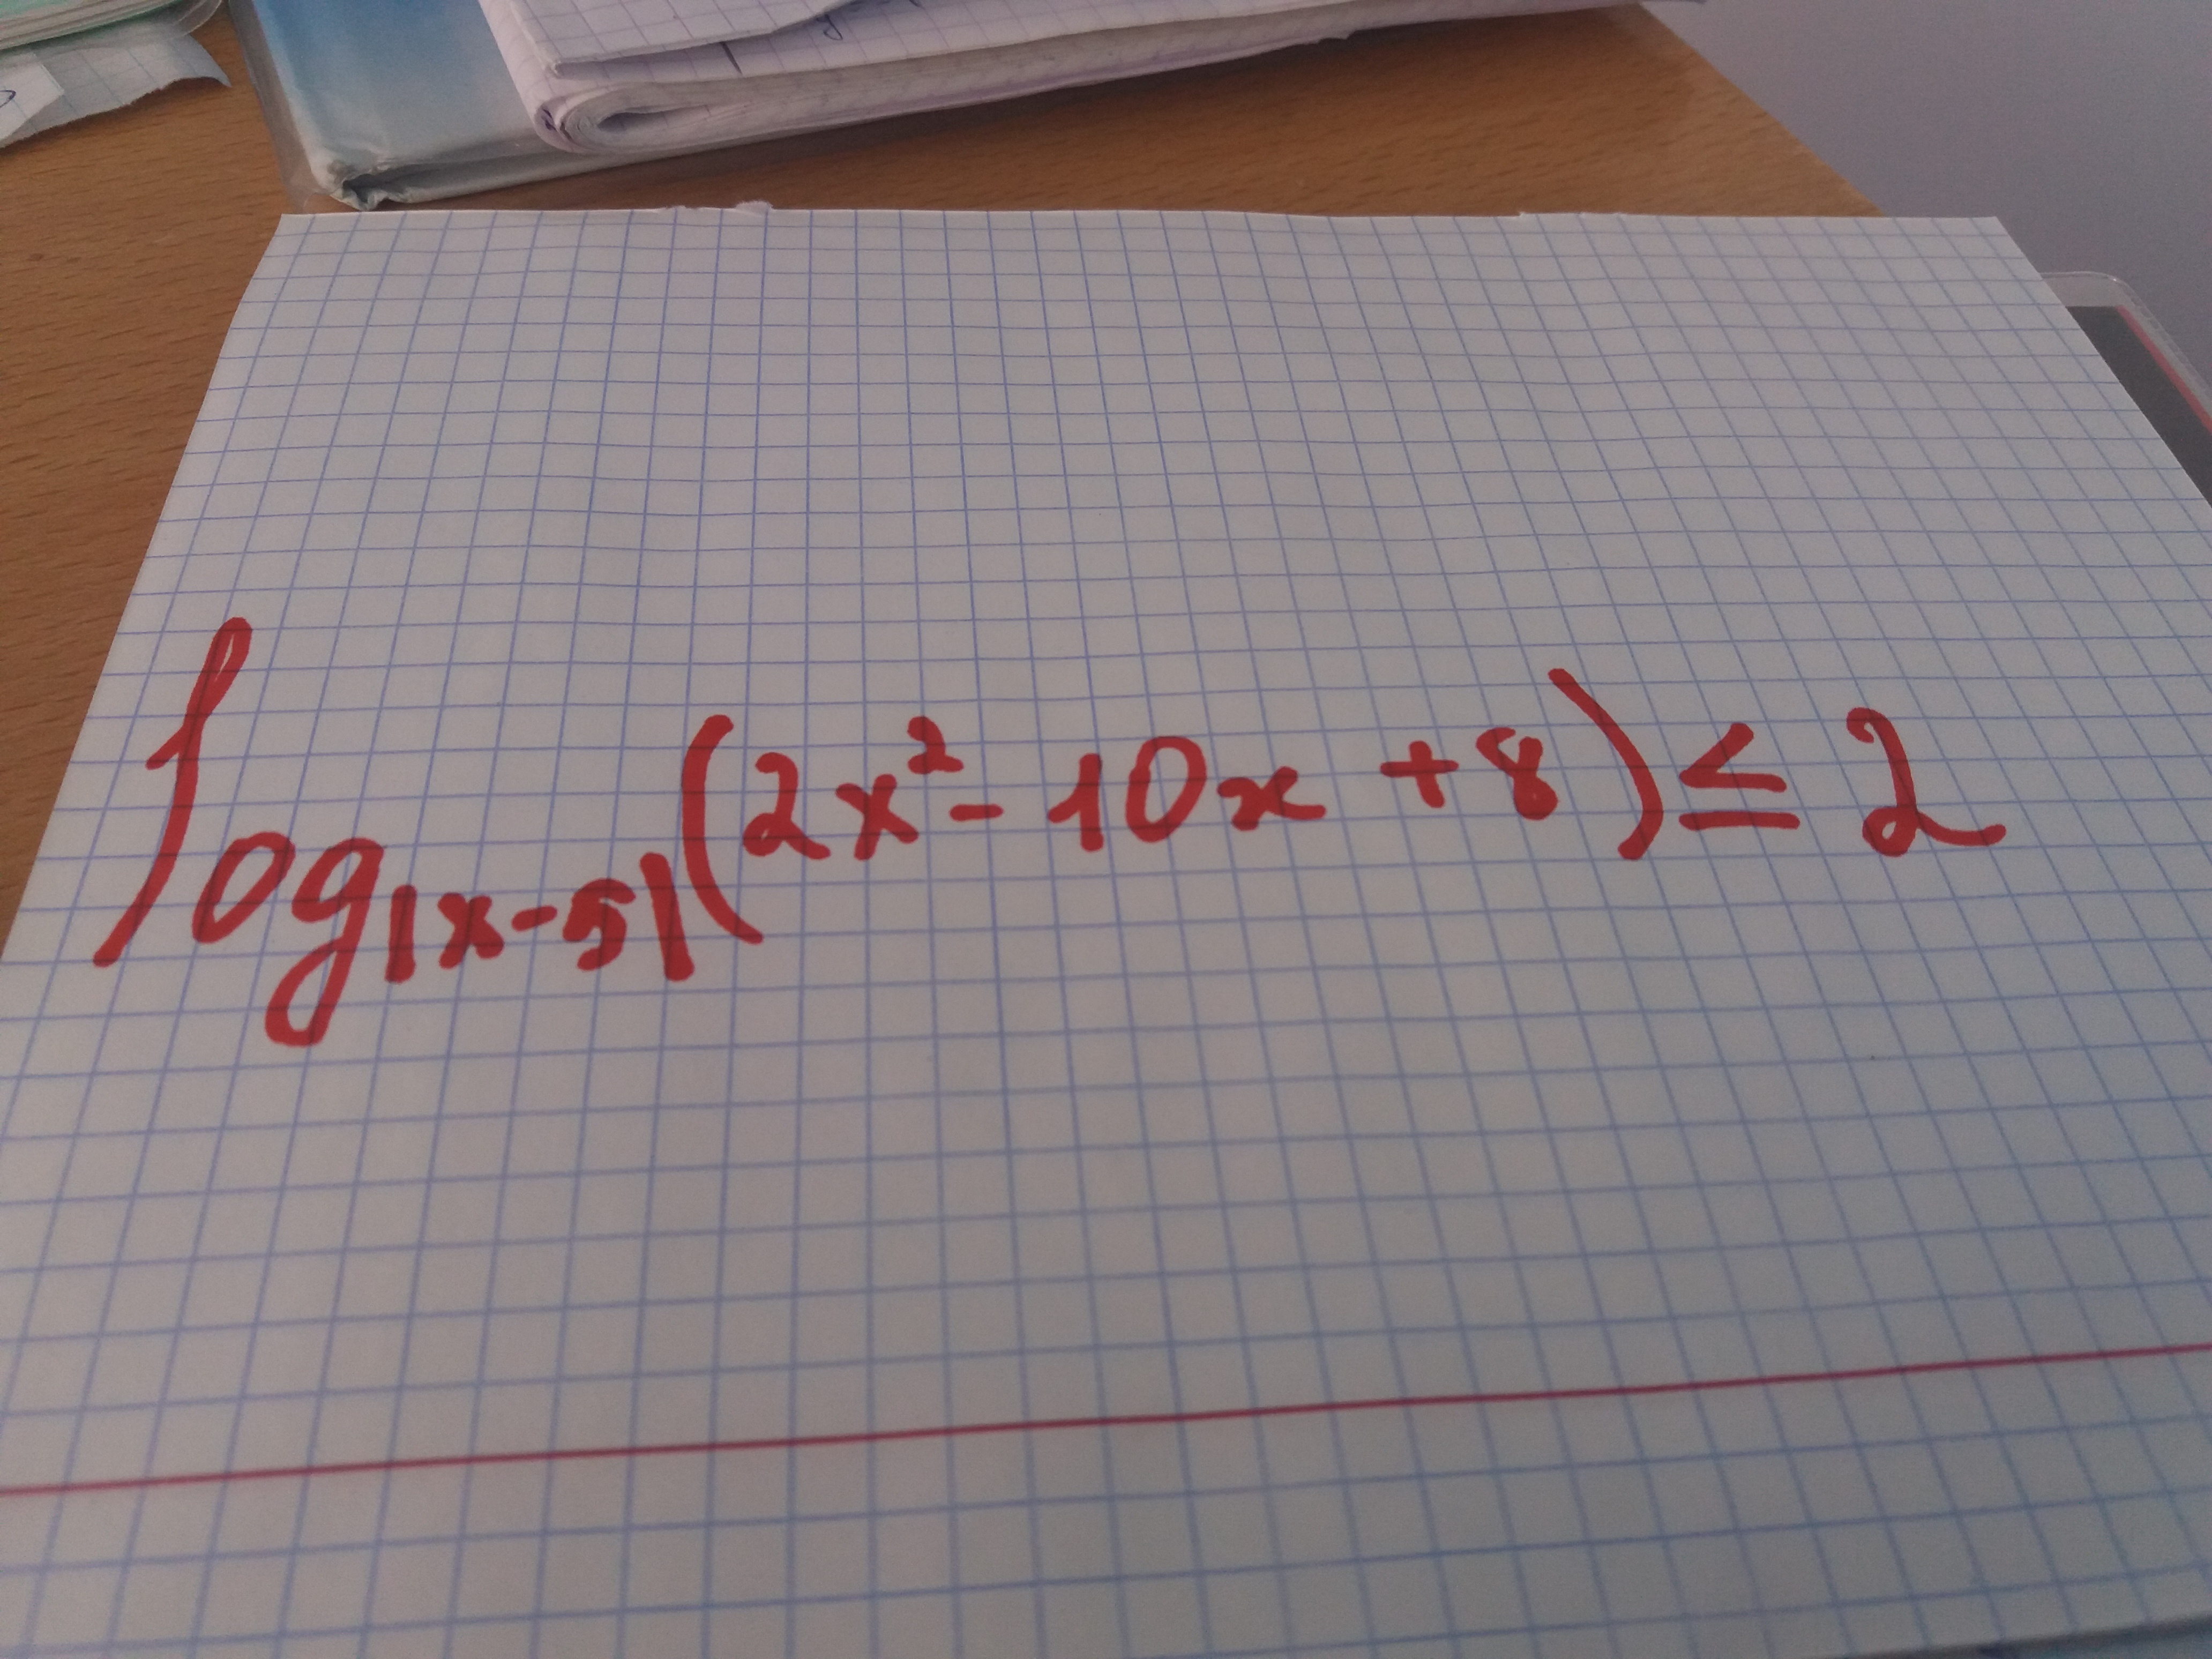 log|x-5|(2x²-10x+8)≤2